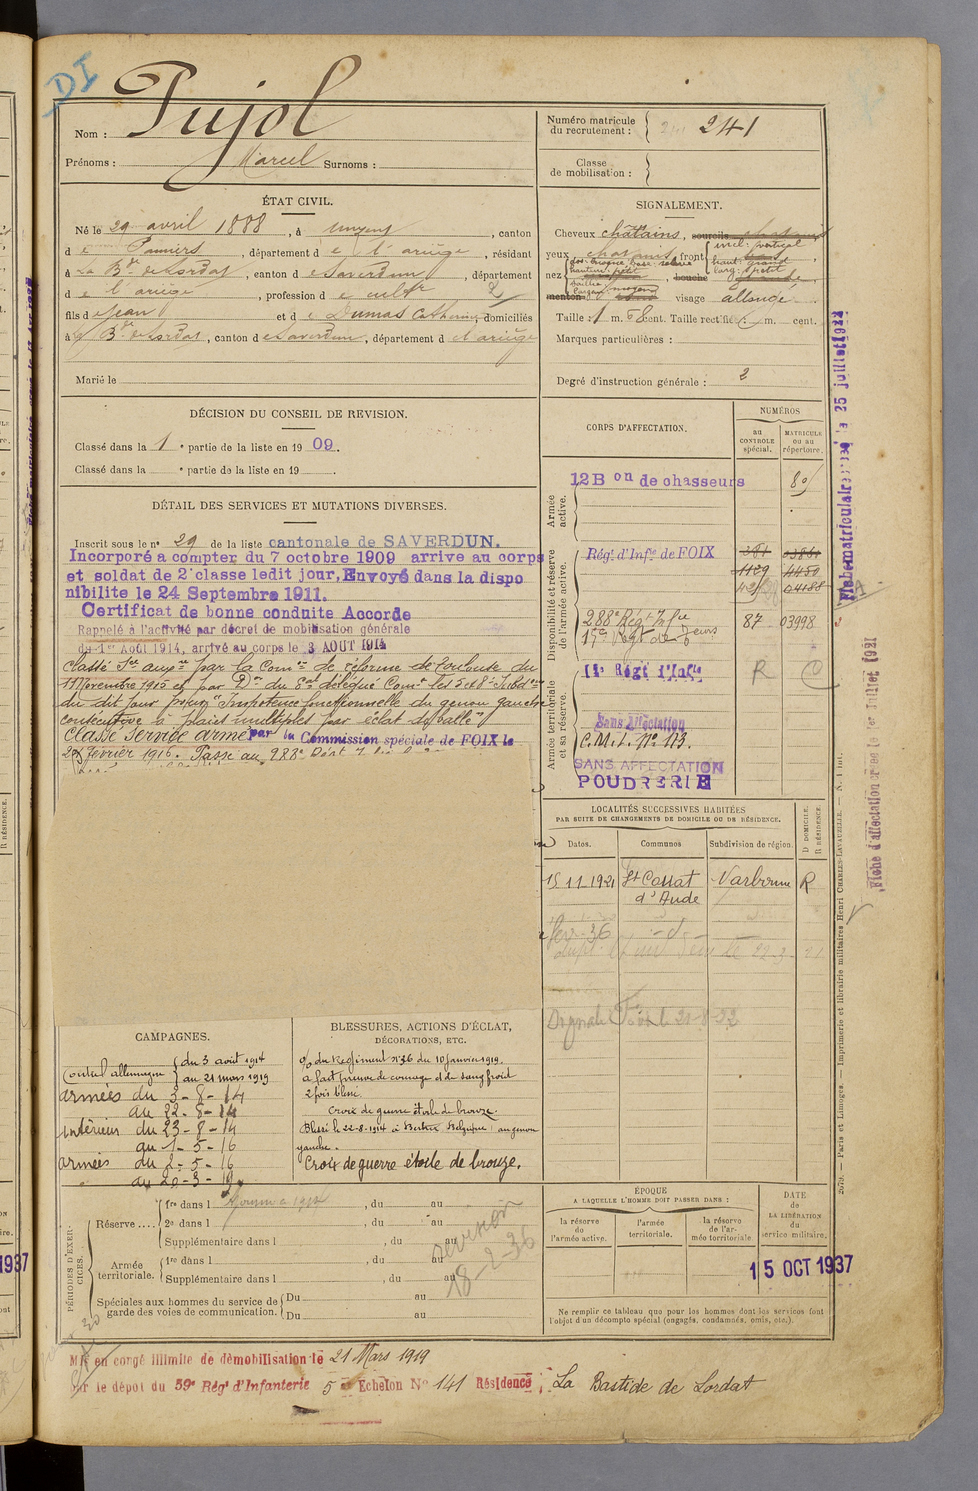 DI
Nom : Pujol
Prénoms : Marcel Surnoms :
Numéro matricule
du recrutement : 241
Classe
de mobilisation :
ÉTAT CIVIL.
Né le 29 avril 1888, à Unzent, canton
de Pamiers, département de l'ariège, résidant
à La Bde de Lordat, canton de Saverdun, département
de l'ariège, profession de cultr 2
fils de Jean et de Dumas Catherine, domiciliés
à Bde de Lordat, canton de Saverdun, département d l'ariège
Marié le
SIGNALEMENT.
Cheveux châtains, sourcils chatains
yeux chatains, front incl: vertical
haut: grand
larg: petit
nez dos:
hauteur: petit
saillie
largeur moyen
bouche
menton visage allongé
Taille : 1 m. 68 cent. Taille rectifiée m. cent.
Marques particulières :
Degré d'instruction générale : 2
DÉCISION DU CONSEIL DE REVISION.
Classé dans la 1e partie de la liste en 1909.
Classé dans la e partie de la liste en 19
DÉTAIL DES SERVICES ET MUTATIONS DIVERSES.
Inscrit sous le no 29 de la liste cantonale de SAVERDUN.
Incorporé a compter du 7 octobre 1909 arrive au corps
et soldat de 2e classe ledit jour, Envoyé dans la dispo
nibilite le 24 Septembre 1911.
Certificat de bonne conduite Accorde
Rappelé à l'activité par décret de mobilisation générale
du 1er Août 1914, arrivé au corps le 3 AOUT 1914
classé Sce auxre par la Comon de réforme de Toulouse du
11 Novembre 1915 et par Don du Gal délégué Comt les 5e et 8e Subdons
du dit jour pour Impotence fonctionnelle du genou gauche
consécutive à plaies multiples par éclat de balle
Classé Service armé par la Commission spéciale de FOIX le
28 février 1916. Passé au 288e
CORPS D'AFFECTATION.
NUMÉROS
au
CONTROLE
spécial.
MATRICULE
ou au
répertoire.
Armée
active.
12 Bon de chasseurs
Disponibilité et réserve
de l'armée active.
Régt d'Infie de FOIX
1129 4450
04188
288e Régt Infie 87 03998
Armée territoriale
et sa réserve.
Régt d'Infie R
Sans affectation
C.M.I. No 113.
SANS AFFECTATION
POUDRERIE
LOCALITÉS SUCCESSIVES HABITÉES
PAR SUITE DE CHANGEMENTS DE DOMICILE OU DE RÉSIDENCE.
Dates. Communes Subdivision de région. D DOMICILE. R RÉSIDENCE.
15.11.1921 St Couat
d'Aude Narbonne R
fev. 36 -d-
CAMPAGNES.
Contre l'allemagne du 3 août 1914
au 21 mars 1919
armées du 3-8-14
au 22-8-14
intérieur du 23-8-14
au 1-5-16
armées du 2-5-16
au 20-3-19
BLESSURES, ACTIONS D'ÉCLAT,
DÉCORATIONS, ETC.
O/ du Régiment No 36 du 10 janvier 1919.
a fait preuve de courage et de sang froid
2 fois blessé.
Croix de guerre étoile de bronze.
Blessé le 22-8-1914 à Bertrix Belgique au genou
gauche.
Croix de guerre étoile de bronze.
PÉRIODES D'EXERCICES.
Réserve .... 1re dans l , du au
2e dans l , du au
Supplémentaire dans l , du au
Armée
territoriale. 1re dans l , du au
Supplémentaire dans l , du au
Spéciales aux hommes du service de
garde des voies de communication. Du au
Du au
revision
18-2-36
ÉPOQUE
A LAQUELLE L'HOMME DOIT PASSER DANS :
la réserve
de
l'armée active.
l'armée
territoriale.
la réserve
de l'ar-
mée territoriale
DATE
de
LA LIBÉRATION
du
service militaire.
15 OCT 1937
Ne remplir ce tableau que pour les hommes dont les services font
l'objet d'un décompte spécial (engagés, condamnés, omis, etc.).
Mis en congé illimité de démobilisation le 21 Mars 1919
par le dépôt du 59e Régt d'Infanterie 5e Echelon No 141 Résidence : La Bastide de Lordat
Fiche matriculaire le 25 juillet 1921
Fiche d'affectation le 1er Juillet 1921
2079. — Paris et Limoges. — Imprimerie et librairie militaires Henri CHARLES-LAVAUZELLE.
1937